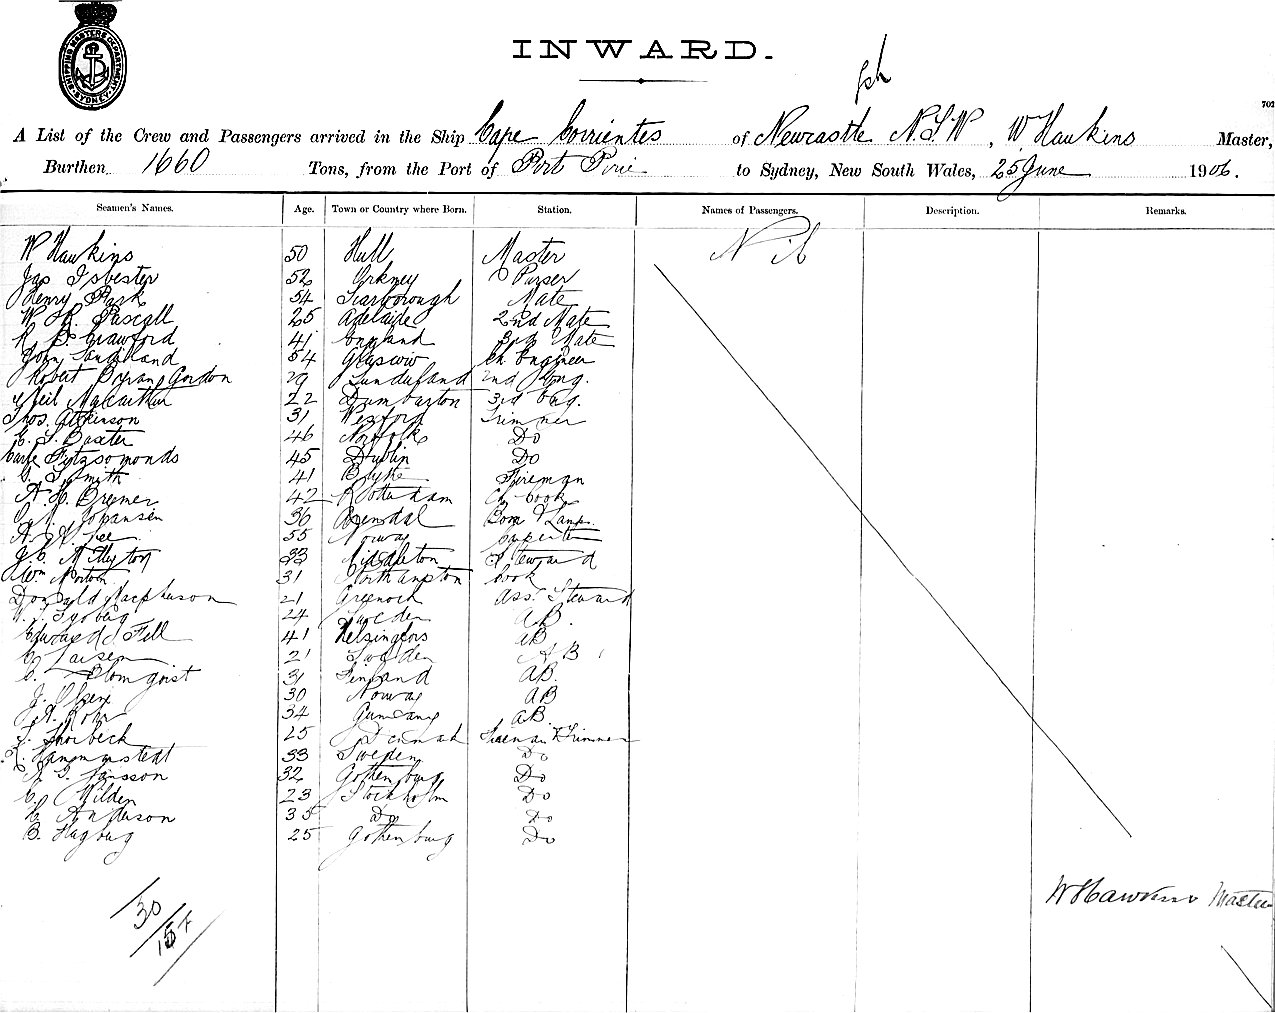 SHIPPING MASTERS DEPARTMENT SYDNEY
INWARD.
702
A List of the Crew and Passengers arrived in the Ship Cape Corrientes of Newcastle N.S.W, W Hawkins Master,
Burthen 1660 Tons, from the Port of Port Pirie to Sydney, New South Wales, 25 June 1906.
Seamen's Names. Age. Town or Country where Born. Station. Names of Passengers. Description. Remarks.
W Hawkins 50 Hull Master Nil
Jas Isbester 52 Orkney Purser
Henry Pask 54 Scarborough Mate
W H Pascall 25 Adelaide 2nd Mate
R B Crawford 41 England 3rd Mate
John Sandiland 54 Glasgow Ch Engineer
Robert Bryan Gordon 29 Sunderland 2nd Eng.
Neil Macarthur 22 Dumbarton 3rd Eng.
Thos. Atkinson 31 Wexford Trimmer
C. S. Baxter 46 Norfolk Do
Fitzsomonds 45 Dublin Do
Smith 41 Blythe Fireman
A H. Bremer 42 Rotterdam Ch Cook
Johansen 36 Arendal Bosn & Lamps
A. Lee 55 Norway Carpenter
33 Middleton Steward
Wm Norton 31 Northampton Cook
Donald Macpherson 21 Greenock Ass. Steward
24 Sweden AB.
Edward Fell 41 Helsingfors AB
C Larsen 21 Sweden AB
C. Blomqvist 31 Finland AB.
J. Olsen 30 Norway AB
A. Rohr 34 Germany AB.
Thorbeck 25 Denmark Fireman & Trimmer
Hammarstedt 33 Sweden Do
A G. Jansson 32 Gothenburg Do
C. Wilden 23 Stockholm Do
C Anderson 35 Do Do
B. Hagburg 25 Gothenburg Do
W Hawkins Master
30